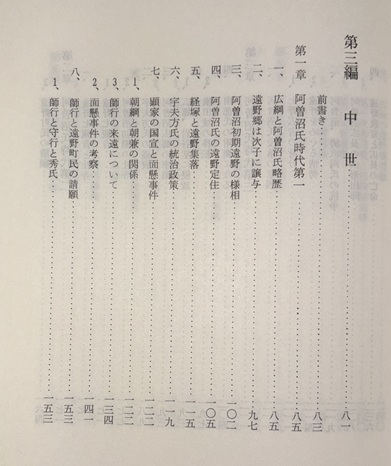 第三編 中世……八一
前書き……八三
第一章 阿曽沼氏時代第一……八五
一、広綱と阿曽沼氏略歴……八五
二、遠野郷は次子に譲与……九七
三、阿曽沼初期遠野の様相……一〇二
四、阿曽沼氏の遠野定住……一〇五
五、経塚と遠野集落……一一五
六、宇夫方氏の統治政策……一一九
七、顕家の国宣と面懸事件……一二二
1、朝綱と朝兼の関係……一二二
3、師行の来遠について……一三四
2、面懸事件の考察……一四一
八、師行と遠野町民の請願……一五三
1、師行と守行と秀氏……一五三